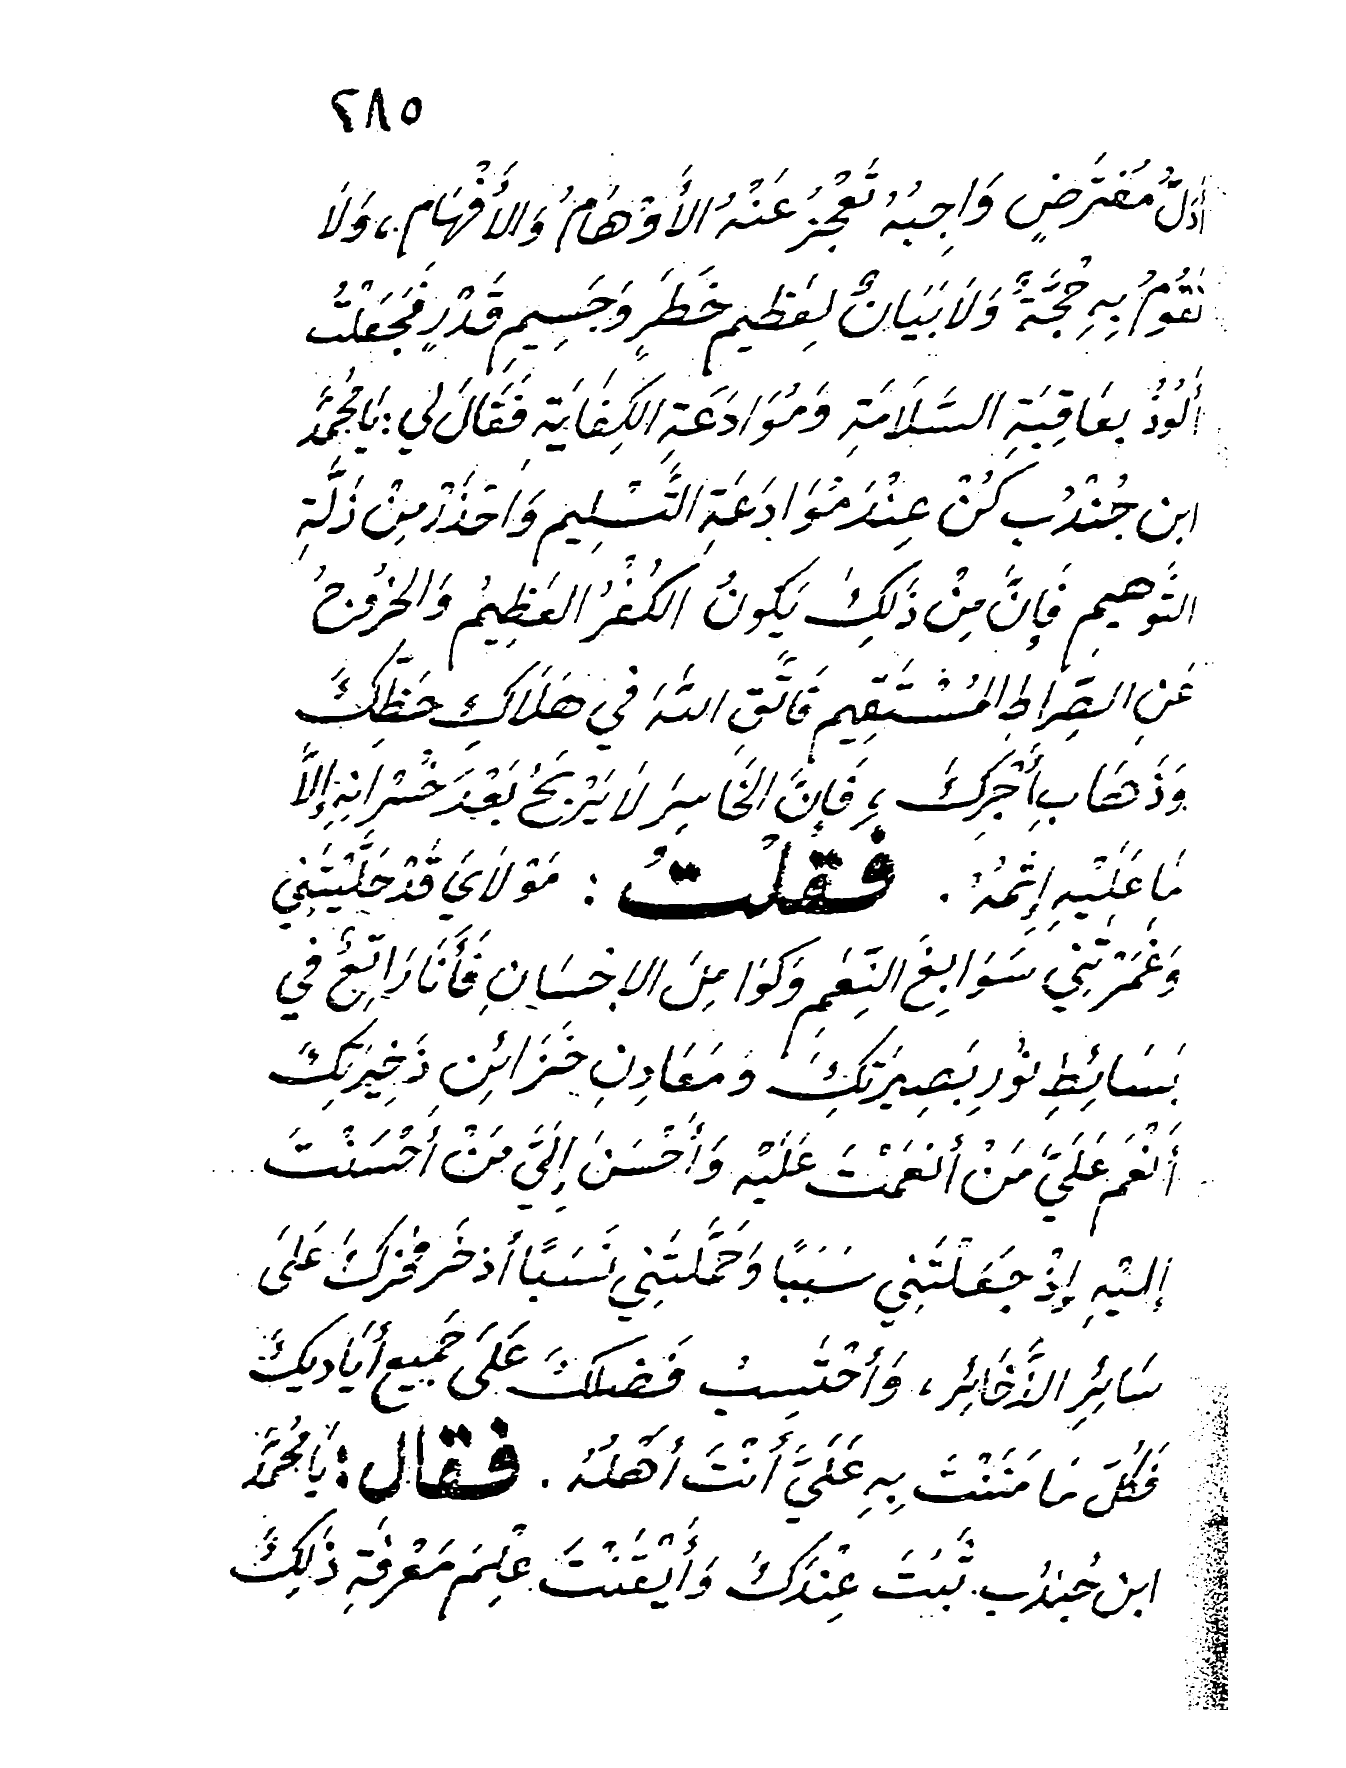 ٢٨٥
أَدَلُّ مُفْتَرَضٍ وَاجِبُهُ تَعْجِزُ عَنْهُ الأَوْهَامُ وَالأَفْهَامِ، وَلَا
تَقُومُ بِهِ حُجَّةٌ وَلَا بَيَانٌ لِعَظِيمِ خَطَرٍ وَجَسِيمِ قَدْرٍ فَجَعَلْتُ
أَلُوذُ بِعَاقِبَةِ السَّلَامَةِ وَمُوَادَعَةِ الكِفَايَةِ فَقَالَ لي : يَا مُحَمَّدَ
ابن جُنْدُب كُنْ عِنْدَ مُوَادَعَةِ التَّسْلِيمِ وَاحْذَرْ مِنْ زَلَّةِ
التَّوهيمِ فَإِنَّ مِنْ ذَلِكَ يَكونُ الكُفْرُ العَظِيمُ وَالخُرُوجُ
عَنِ الصِّرَاطِ المُسْتَقِيمِ فَاتَّقِ اللهَ في هَلَاكِ حَظِّكَ
وَذَهَابِ أَجْرِكَ ، فَإِنَّ الخَاسِرَ لَا يَرْبَحُ بَعْدَ خُسْرَانِهِ إِلاَّ
مَا عَلَيْهِ إِثْمُهُ . فَقُلْتُ : مَوْلَايَ قَدْ حَلَّيْتَني
وَغَمَرْتَنِي سَوَابِغَ النِّعَمِ وَكَوَامِلَ الإحْسَانِ فَأَنَا رَاتِعٌ في
بَسَائِطِ نُورِ بَصِيرَتِكَ وَمَعَادِنِ خَزَائِنِ ذَخِيرَتِكَ
أَنْعَمَ عَلَيَّ مَنْ أَنعَمْتَ عَلَيْهِ وَأَحْسَنَ إِلَيَّ مَنْ أَحْسَنْتَ
إِلَيْهِ إِذْ جَعَلْتَنِي سَبَبًا وَحَمَّلتَنِي نَسَبًا أذخَرُ فَخْرَكَ عَلَى
سَائِرِ الذَّخَائِر، وَأَحْتَسِبُ فَضْلَكَ عَلَى جَمِيعِ أَيَادِيكَ
فَكُلّ مَا مَنَنْتَ بِهِ عَلَيَّ أَنْتَ أَهْلُهُ . فقال : يَا مُحَمَّدَ
ابن جُندُب ثَبُتَ عِنْدَكَ وَأَيْقَنْتَ عِلْمَ مَعْرِفَةِ ذَلِكَ